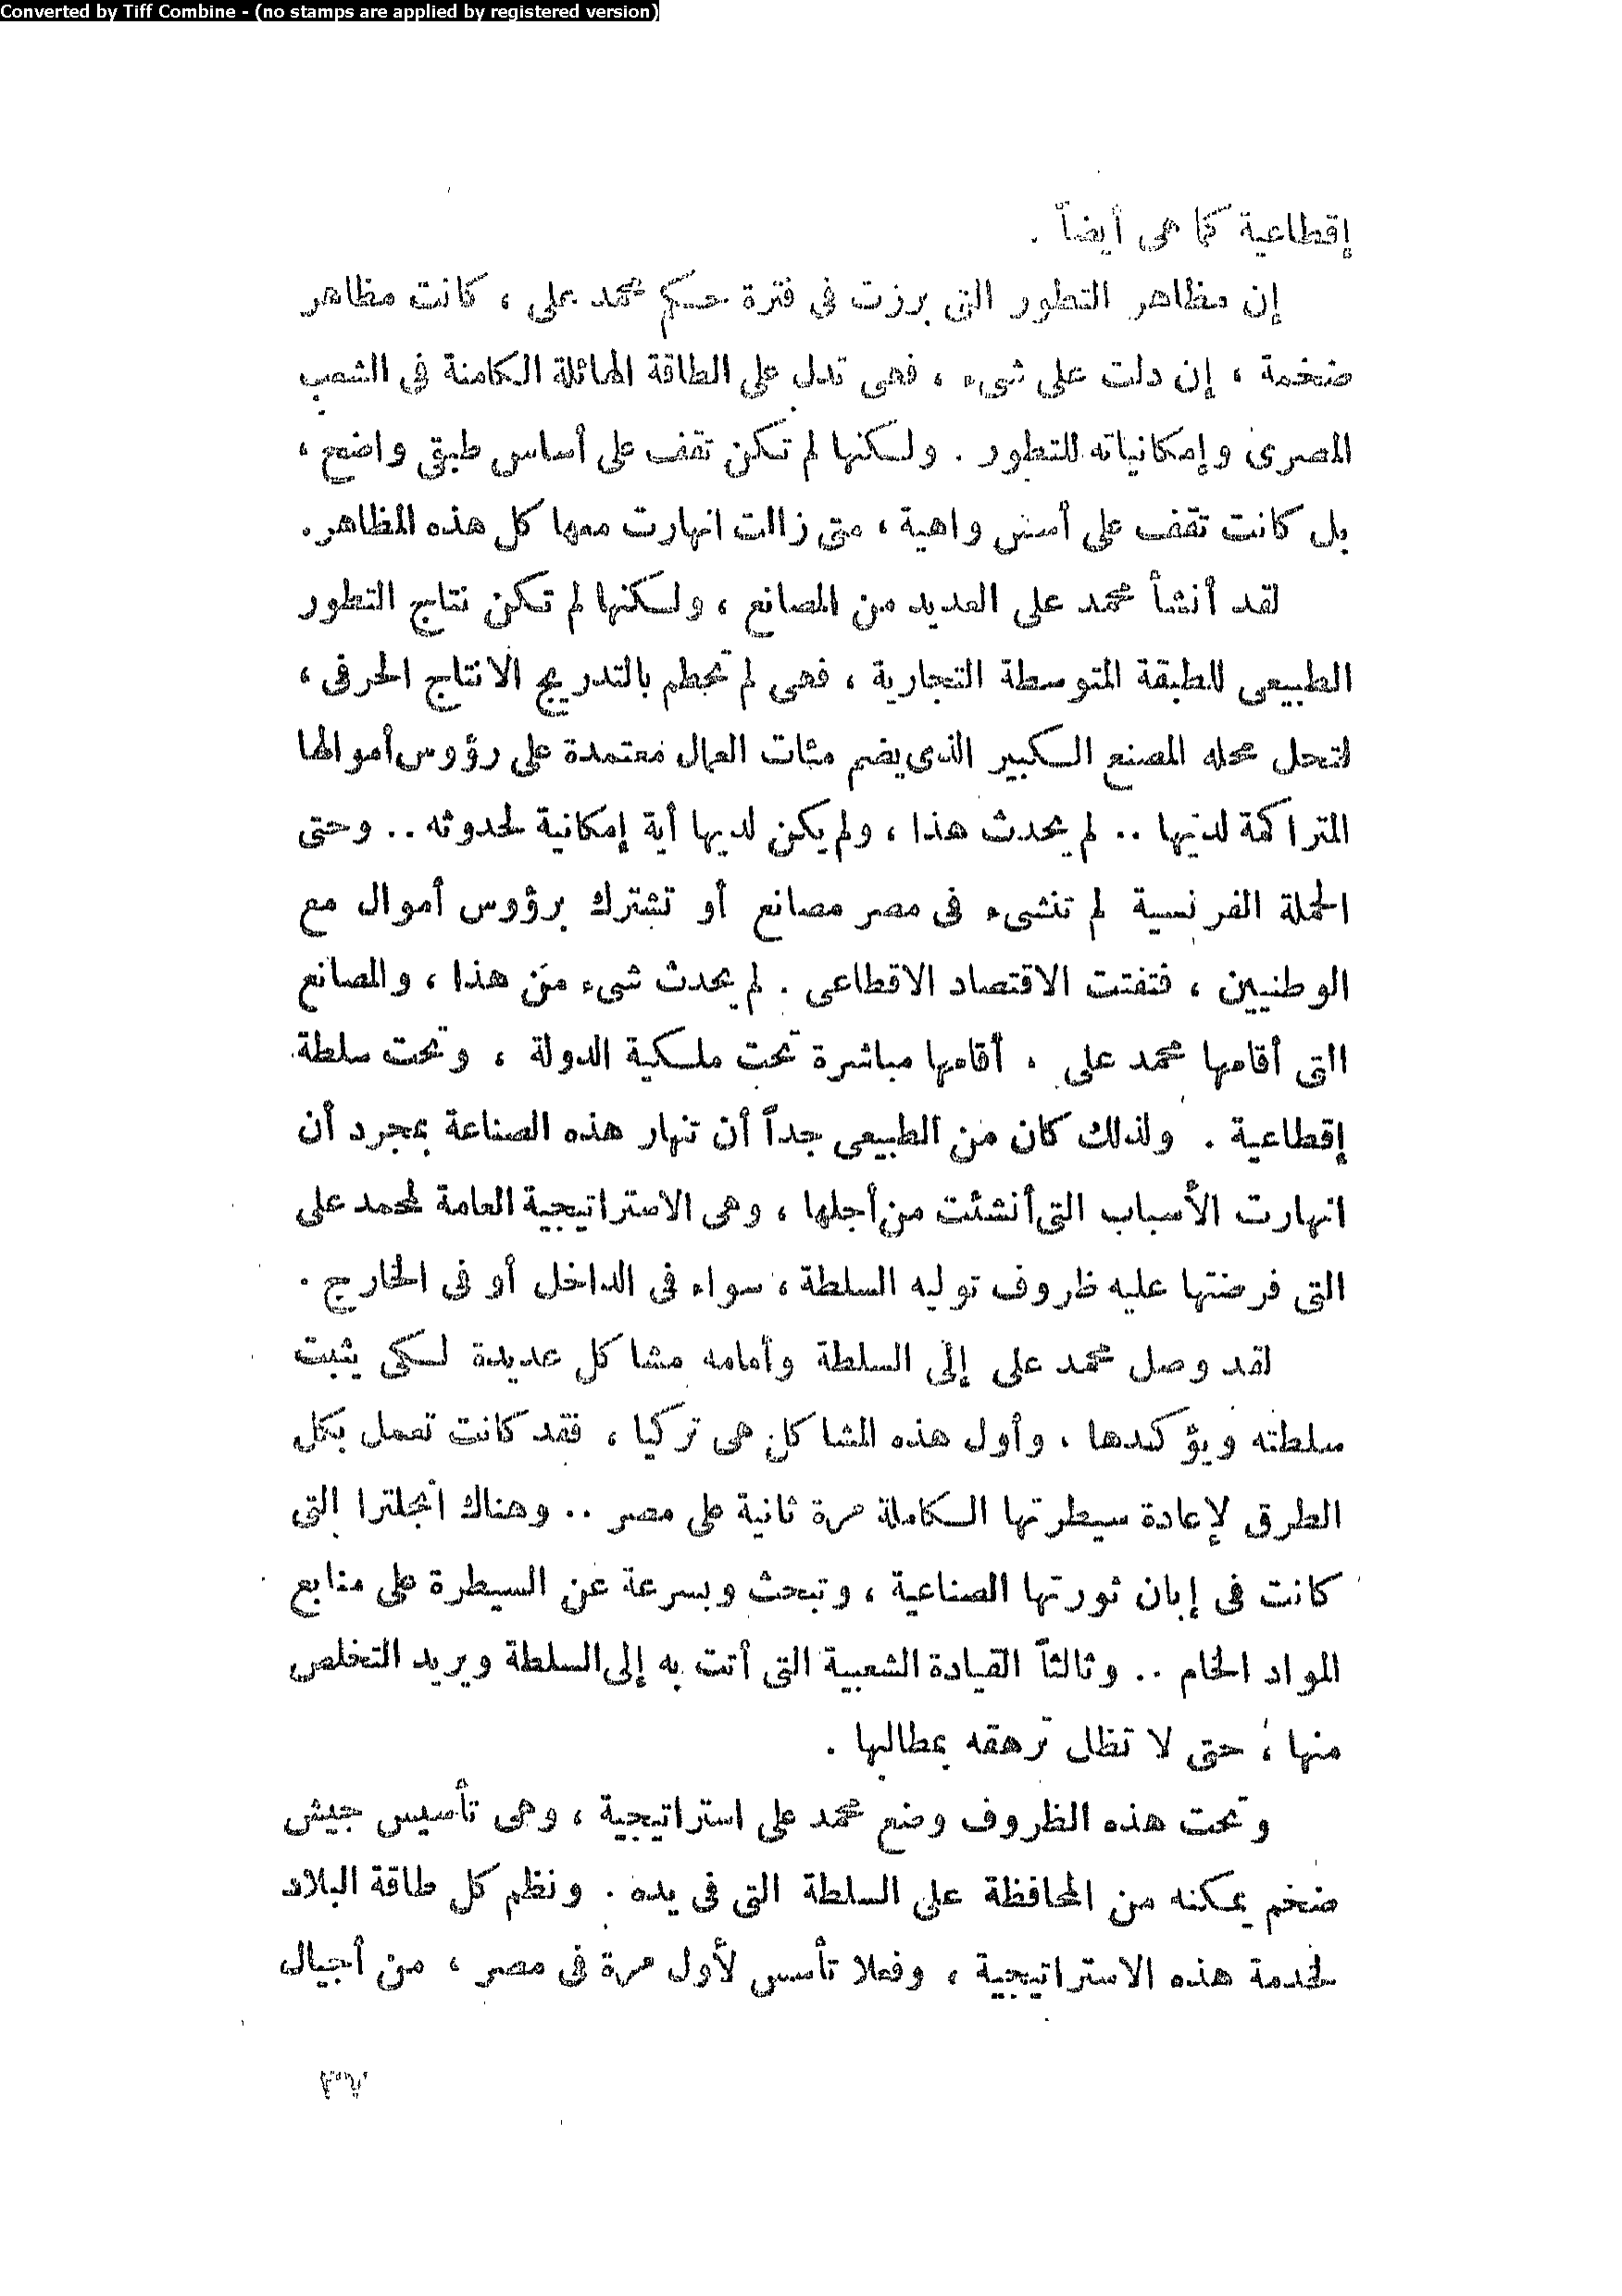 Converted by Tiff Combine - (no stamps are applied by registered version)
إقطاعية كما هى أيضاً .
إن مظاهر التطور التى برزت فى فترة حكم محمد على ، كانت مظاهر
ضخمة ، إن دلت على شىء ، فهى تدل على الطاقة الهائلة الكامنة فى الشعب
المصرى وإمكانياته للتطور . ولكنها لم تكن تقف على أساس طبقى واضح ،
بل كانت تقف على أسس واهية ، متى زالت انهارت معها كل هذه المظاهر .
لقد أنشأ محمد على العديد من المصانع ، ولكنها لم تكن نتاج التطور
الطبيعى للطبقة المتوسطة التجارية ، فهى لم تحطم بالتدريج الانتاج الحرفى ،
لتحل محله المصنع الكبير الذى يضم مئات العمال معتمدة على رؤوس أموالها
المتراكمة لديها .. لم يحدث هذا ، ولم يكن لديها أية إمكانية لحدوثه .. وحتى
الحملة الفرنسية لم تنشىء فى مصر مصانع أو تشترك برؤوس أموال مع
الوطنيين ، فتفتت الاقتصاد الاقطاعى . لم يحدث شىء من هذا ، والمصانع
التى أقامها محمد على ، أقامها مباشرة تحت ملكية الدولة ، وتحت سلطة
إقطاعية . ولذلك كان من الطبيعى جداً أن تنهار هذه الصناعة بمجرد أن
انهارت الأسباب التى أنشئت من أجلها ، وهى الاستراتيجية العامة لمحمد على
التى فرضتها عليه ظروف توليه السلطة ، سواء فى الداخل أو فى الخارج .
لقد وصل محمد على إلى السلطة وأمامه مشاكل عديدة لكى يثبت
سلطته ويؤكدها ، وأول هذه المشاكل هى تركيا ، فقد كانت تعمل بكل
الطرق لإعادة سيطرتها الكاملة مرة ثانية على مصر .. وهناك انجلترا التى
كانت فى إبان ثورتها الصناعية ، وتبحث وبسرعة عن السيطرة على منابع
المواد الخام .. وثالثاً القيادة الشعبية التى أتت به إلى السلطة ويريد التخلص
منها ، حتى لا تظل ترهقه بمطالبها .
وتحت هذه الظروف وضع محمد على استراتيجية ، وهى تأسيس جيش
ضخم يمكنه من المحافظة على السلطة التى فى يده . ونظم كل طاقة البلاد
لخدمة هذه الاستراتيجية ، وفعلا تأسس لأول مرة فى مصر ، من أجيال
٣٧